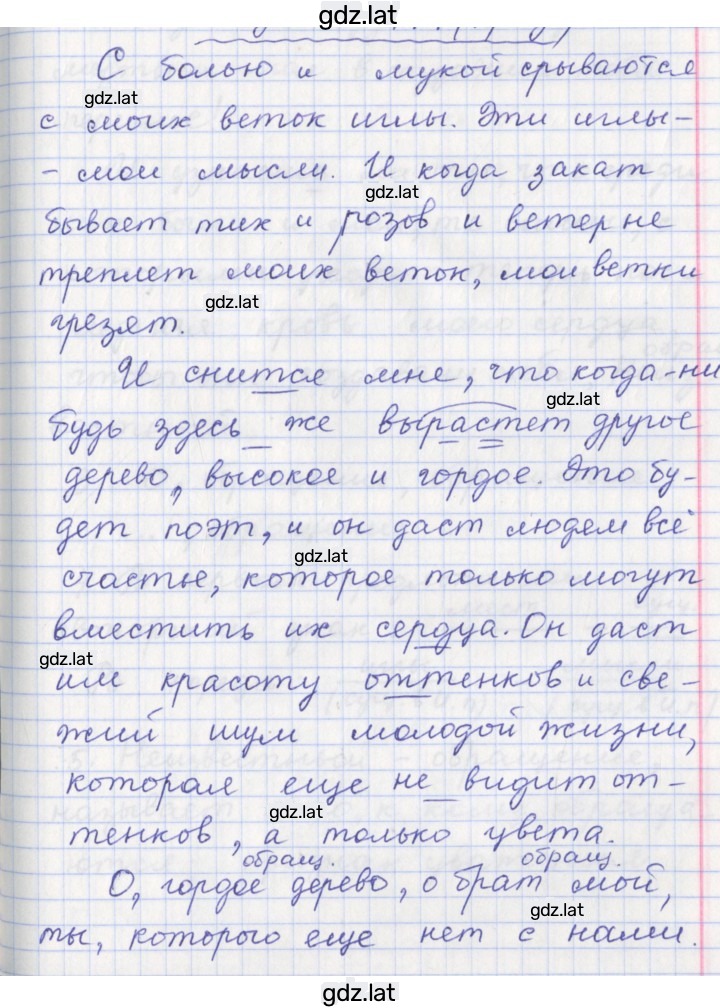 gdz.lat
С болью и мукой срываются
gdz.lat
с моих веток иглы. Эти иглы-
- мои мысли. И когда закат
gdz.lat
бывает тих и розов и ветер не
треплет моих веток, мои ветки
gdz.lat
грезят.
И снится мне, что когда-ни
gdz.lat
будь здесь же вырастет другое
дерево, высокое и гордое. Это бу-
дет поэт, и он даст людям всё
gdz.lat
счастье, которое только могут
вместить их сердца. Он даст
gdz.lat
им красоту оттенков и све-
жий шум молодой жизни,
которая еще не видит от-
gdz.lat
тенков, а только цвета.
обращ. обращ.
О, гордое дерево, о брат мой,
gdz.lat
ты, которого еще нет с нами.
gdz.lat